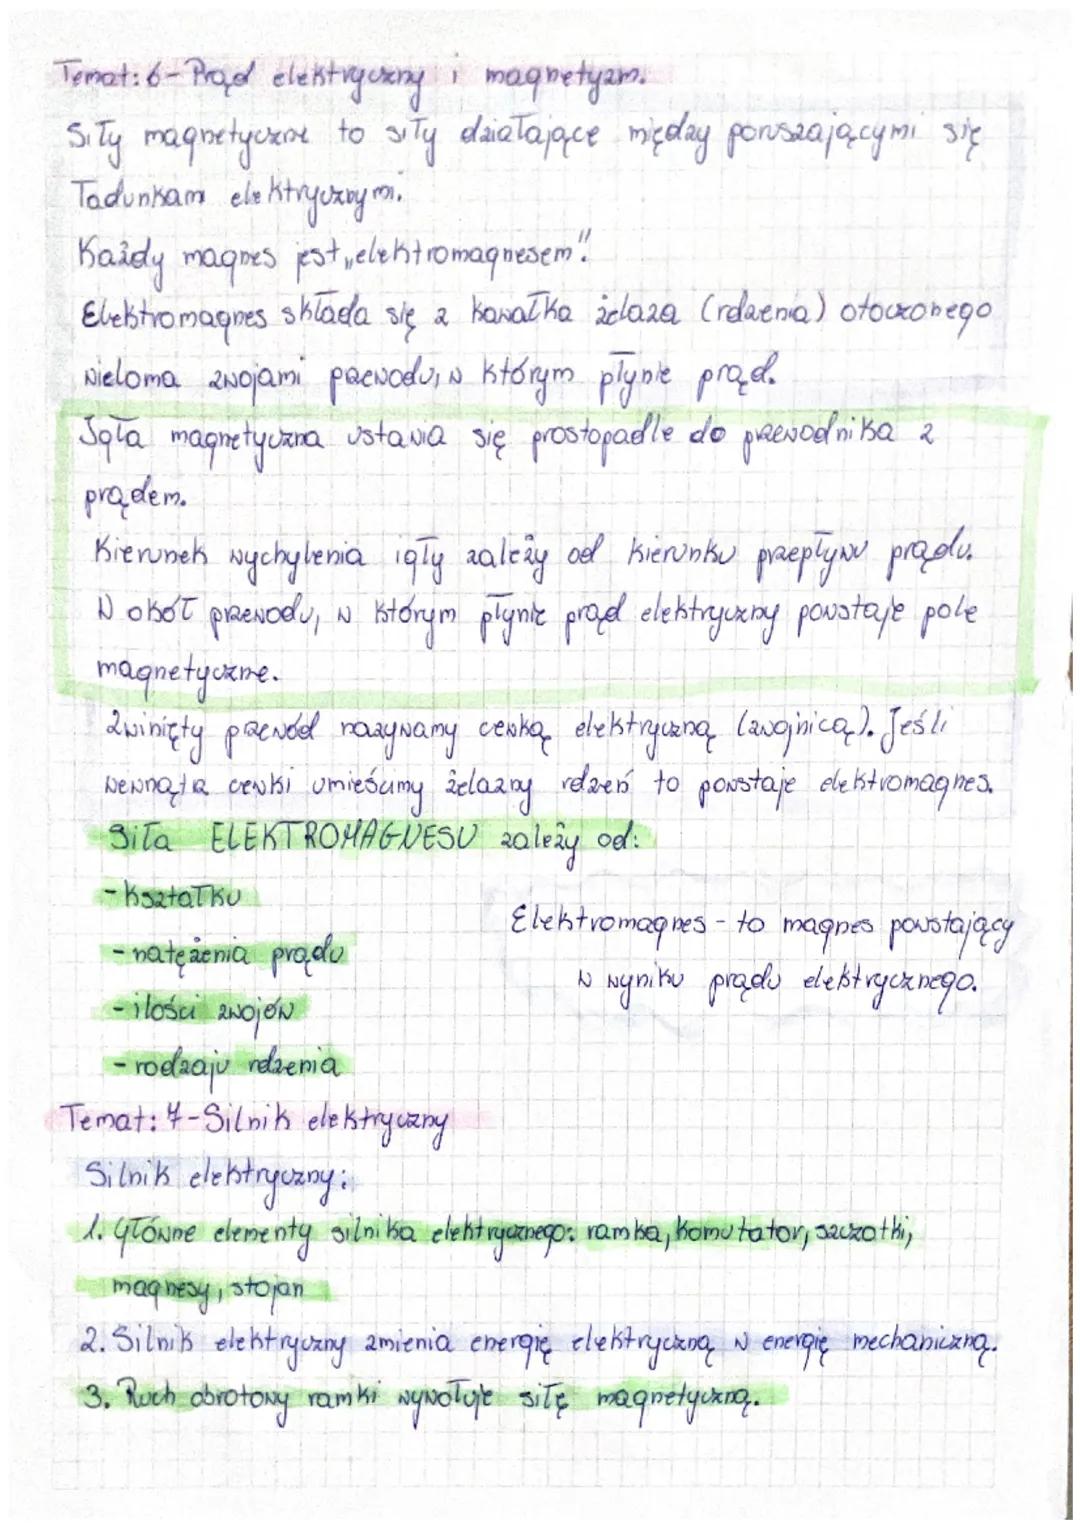 Temat: 6 - Prąd elektryczny i magnetyzm.
Siły magnetyczne to siły działające między poruszającymi się
ładunkami elektrycznymi.
Każdy magnes jest „elektromagnesem".
Elektromagnes składa się z kawałka żelaza (rdzenia) otoczonego
wieloma zwojami przewodu, w którym płynie prąd.
Igła magnetyczna ustawia się prostopadle do przewodnika z
prądem.
Kierunek wychylenia igły zależy od kierunku przepływu prądu.
W okół przewodu, w którym płynie prąd elektryczny powstaje pole
magnetyczne.
Zwinięty przewód nazywamy cewką elektryczną (zwojnicą). Jeśli
wewnątrz cewki umieścimy żelazny rdzeń to powstaje elektromagnes.
Siła ELEKTROMAGNESU zależy od:
- kształtku
- natężenia prądu
- ilości zwojów
- rodzaju rdzenia
Elektromagnes - to magnes powstający
w wyniku prądu elektrycznego.
Temat: 7 - Silnik elektryczny
Silnik elektryczny:
1. Główne elementy silnika elektrycznego: ramka, komutator, szczotki,
magnesy, stojan
2. Silnik elektryczny zmienia energię elektryczną w energię mechaniczną.
3. Ruch obrotowy ramki wywołuje siłę magnetyczną.